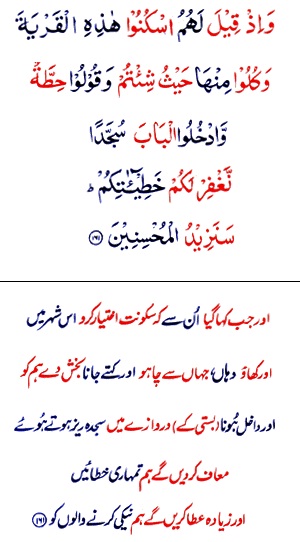 وَاِذْ قِيْلَ لَهُمُ اسْكُنُوْا هٰذِهِ الْقَرْيَةَ
وَكُلُوْا مِنْهَا حَيْثُ شِئْتُمْ وَقُوْلُوْا حِطَّةٌ
وَّادْخُلُوا الْبَابَ سُجَّدًا
نَّغْفِرْ لَكُمْ خَطِيْٓـٰٔتِكُمْ ؕ
سَنَزِيْدُ الْمُحْسِنِيْنَ ﴿۱۶۱﴾
اور جب کہا گیا اُن سے کہ سکونت اختیار کرو اس شہر میں
اور کھاؤ وہاں جہاں سے چاہو اور کہتے جانا بخش دے ہم کو
اور داخل ہونا (بستی کے) دروازے میں سجدہ ریز ہوتے ہوئے
معاف کردیں گے ہم تمہاری خطائیں
اور زیادہ عطا کریں گے ہم نیکی کرنے والوں کو ﴿۱۶۱﴾